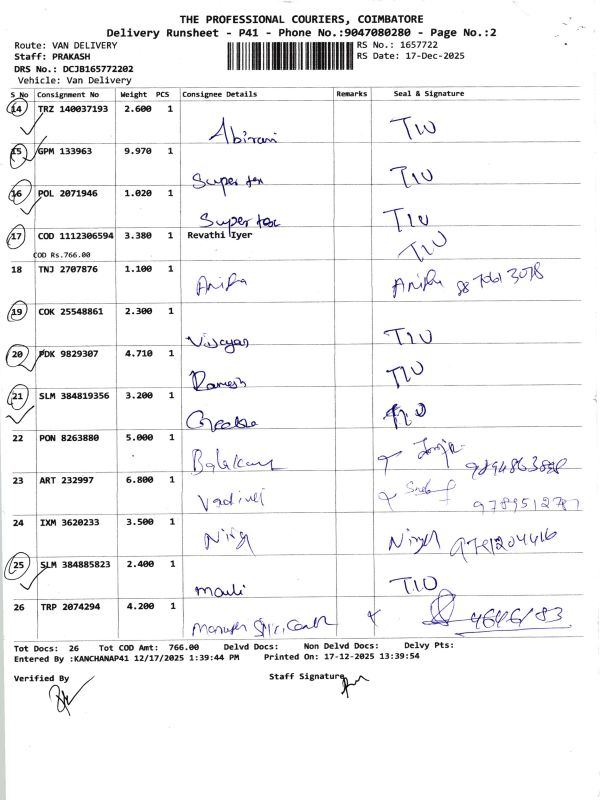 THE PROFESSIONAL COURIERS, COIMBATORE
Delivery Runsheet - P41 - Phone No.:9047080280 - Page No.:2
Route: VAN DELIVERY RS No.: 1657722
Staff: PRAKASH RS Date: 17-Dec-2025
DRS No.: DCJB165772202
Vehicle: Van Delivery
S_No Consignment No Weight PCS Consignee Details Remarks Seal & Signature
14 TRZ 140037193 2.600 1
Abirami TIU
15 GPM 133963 9.970 1
Super tex TIU
16 POL 2071946 1.020 1
Super tex TIU
17 COD 1112306594 3.380 1 Revathi Iyer
COD Rs.766.00 TIU
18 TNJ 2707876 1.100 1
19 COK 25548861 2.300 1
TIU
20 PDK 9829307 4.710 1
Ramesh TIU
21 SLM 384819356 3.200 1
TIU
22 PON 8263880 5.000 1
23 ART 232997 6.800 1
24 IXM 3620233 3.500 1
25 SLM 384885823 2.400 1
Mouli TIU
26 TRP 2074294 4.200 1
Tot Docs: 26 Tot COD Amt: 766.00 Delvd Docs: Non Delvd Docs: Delvy Pts:
Entered By :KANCHANAP41 12/17/2025 1:39:44 PM Printed On: 17-12-2025 13:39:54
Verified By Staff Signature